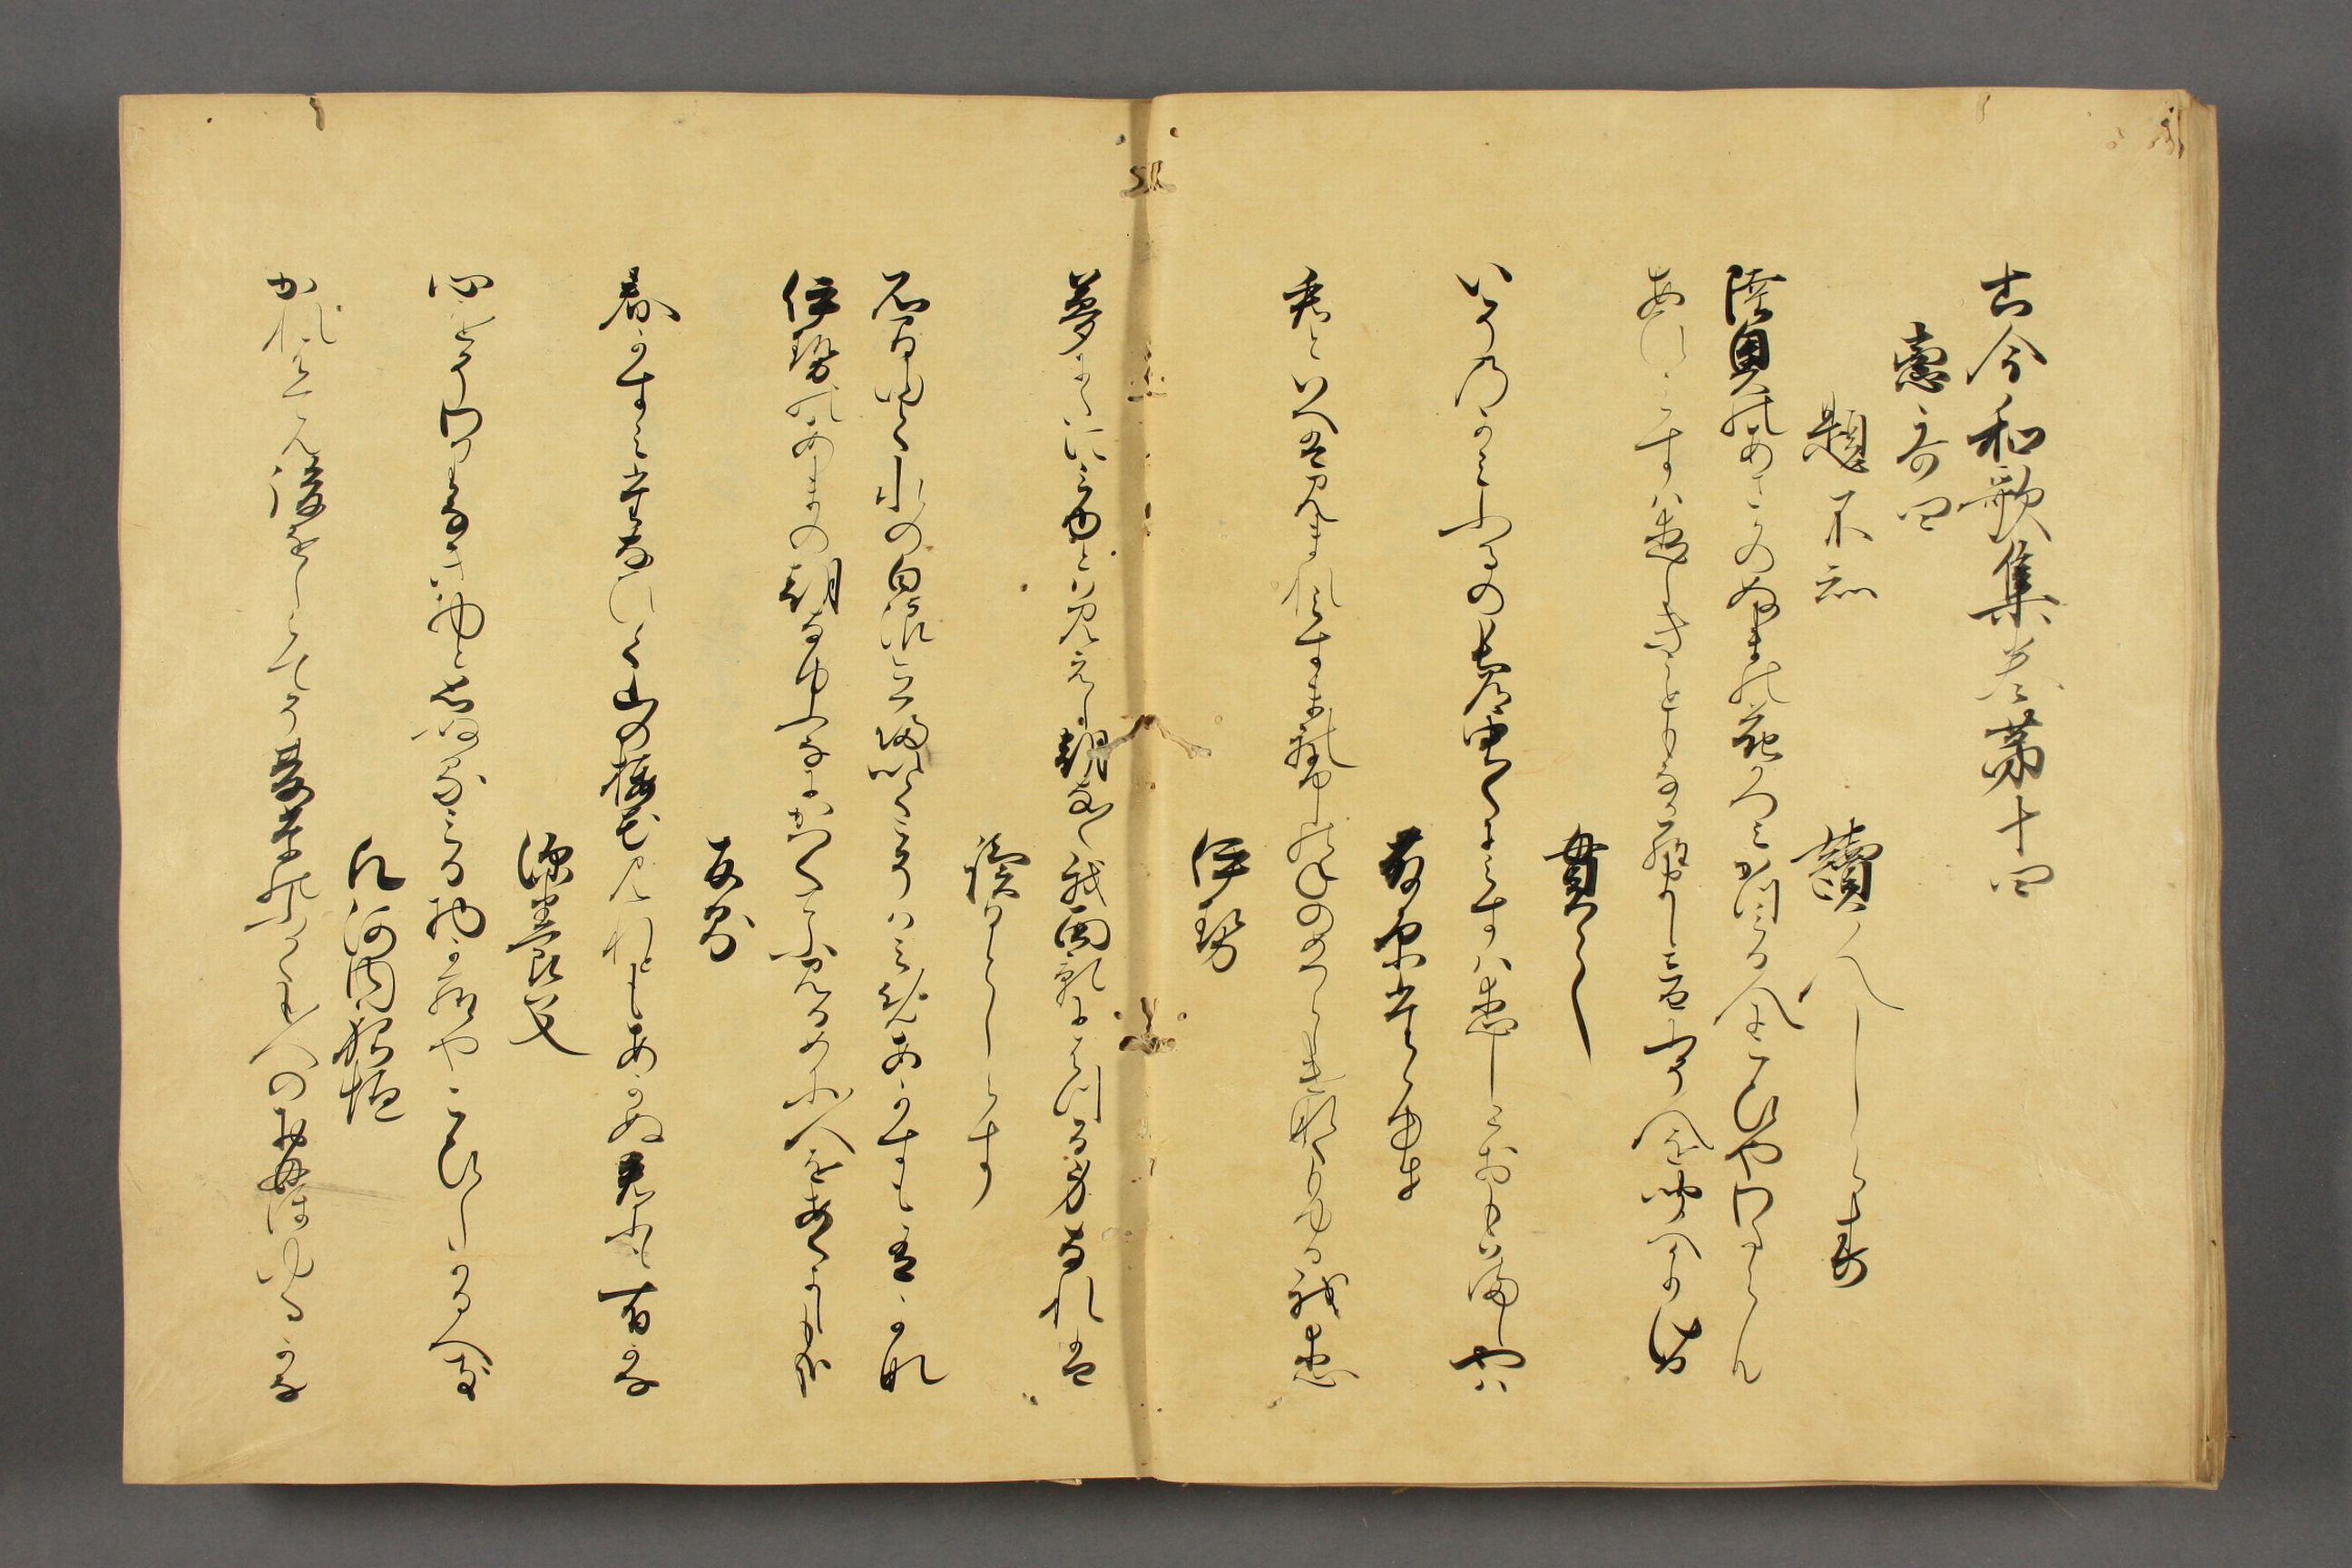 古今和歌集巻第十四
恋哥四
題不知
讀人しらす
陸奥のあさかのぬまの花かつみかつみる人にこひやわたらん
あひみすは恋しきこともなからまし音にそ人を聞へかりける
貫之
いその神ふるの中道中〳〵にみすは恋しとおもはましやは
藤原忠行
君といへは見まれ見すまれ富士のねのめつらしけなくもゆる我恋
伊勢
夢にたにみゆとは見えし朝な〳〵我面影にはつる身なれは
讀人しらす
石間ゆく水の白浪立帰かくこそはみめあかすも有かな
伊勢のあまの朝な夕なにかつくてふ見るめに人をあくよしもかな
友則
春かすみたなひく山の桜花見れともあかぬ君にも有かな
深養父
心をそわりなき物と思ぬるみる物からやこひしかるへき
凡河内躬恒
かれはてん後をはしらて夏草の深くも人のおもほゆるかな